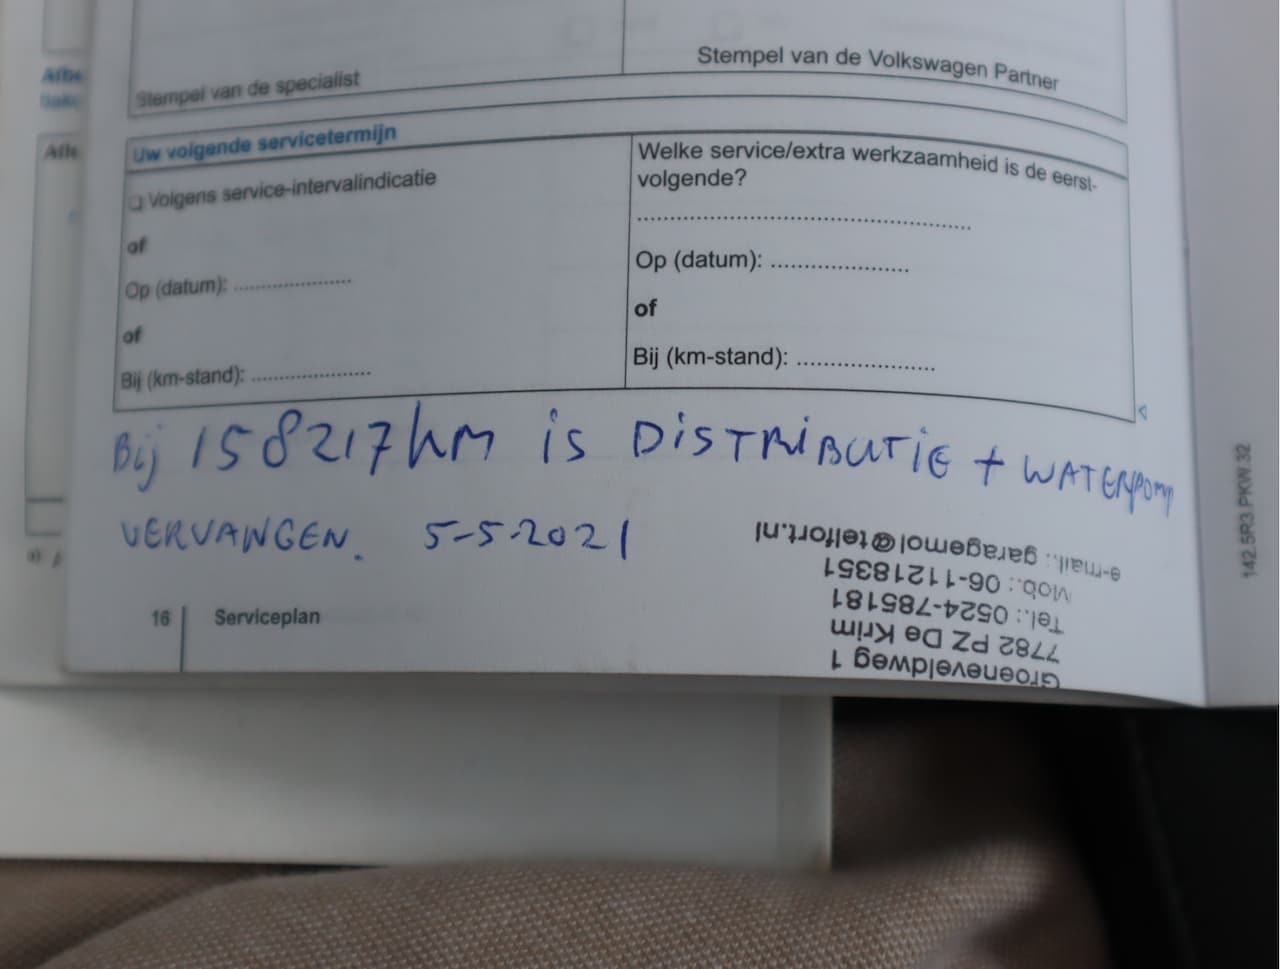 Stempel van de specialist
Stempel van de Volkswagen Partner
Uw volgende servicetermijn
❏ Volgens service-intervalindicatie
of
Op (datum): .....................
of
Bij (km-stand): .....................
Welke service/extra werkzaamheid is de eerst-
volgende?
..................................................
Op (datum): .....................
of
Bij (km-stand): .....................
Bij 158217km is DISTRIBUTIE + WATERpomp
VERVANGEN. 5-5-2021
Groeneveldweg 1
7782 PZ De Krim
Tel.: 0524-785181
Mob.: 06-11218351
e-mail.: garagemol@telfort.nl
16 Serviceplan
142.5R3.PKW.32